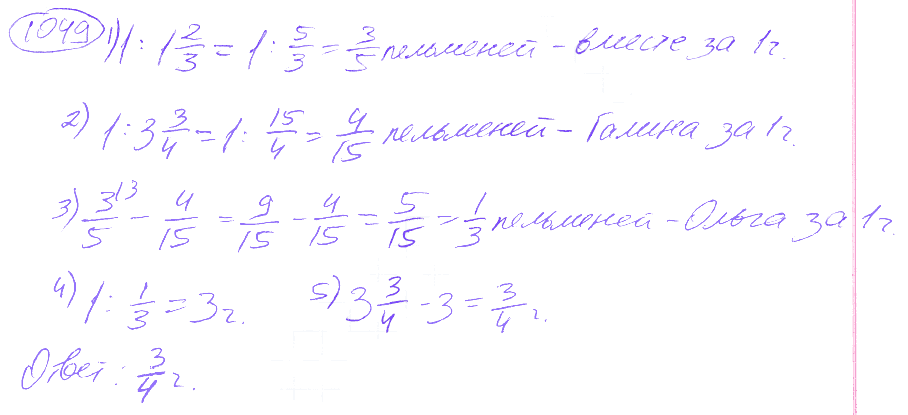 1049 1) 1 : 1 2/3 = 1 : 5/3 = 3/5 пельменей - вместе за 1 г.
2) 1 : 3 3/4 = 1 : 15/4 = 4/15 пельменей - Галина за 1 г.
3) 3/5 ^13 - 4/15 = 9/15 - 4/15 = 5/15 = 1/3 пельменей - Ольга за 1 г.
4) 1 : 1/3 = 3 г. 5) 3 3/4 - 3 = 3/4 г.
Ответ: 3/4 г.